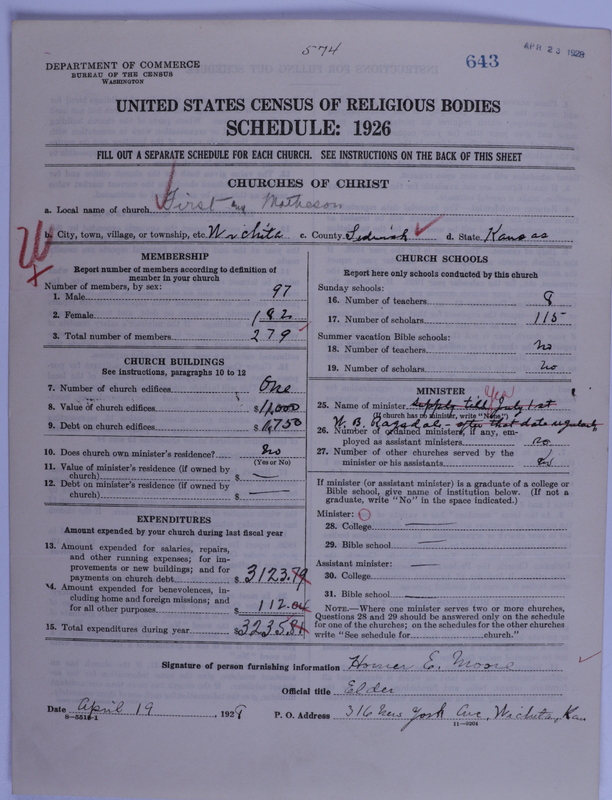 574
643
APR 23 1928
DEPARTMENT OF COMMERCE
BUREAU OF THE CENSUS
WASHINGTON
UNITED STATES CENSUS OF RELIGIOUS BODIES
SCHEDULE: 1926
FILL OUT A SEPARATE SCHEDULE FOR EACH CHURCH. SEE INSTRUCTIONS ON THE BACK OF THIS SHEET
CHURCHES OF CHRIST
a. Local name of church First Matheson
b. City, town, village, or township, etc. Wichita c. County Sedwick d. State Kansas
MEMBERSHIP
Report number of members according to definition of
member in your church
Number of members, by sex:
1. Male 97
2. Female 182
3. Total number of members 279
CHURCH BUILDINGS
See instructions, paragraphs 10 to 12
7. Number of church edifices One
8. Value of church edifices $
9. Debt on church edifices $ 6750
10. Does church own minister's residence? No
(Yes or No)
11. Value of minister's residence (if owned by
church) $ —
12. Debt on minister's residence (if owned by
church) $ —
EXPENDITURES
Amount expended by your church during last fiscal year
13. Amount expended for salaries, repairs,
and other running expenses; for im-
provements or new buildings; and for
payments on church debt $ 3123.79
14. Amount expended for benevolences, in-
cluding home and foreign missions; and
for all other purposes $ 112.02
15. Total expenditures during year $ 3235.81
CHURCH SCHOOLS
Report here only schools conducted by this church
Sunday schools:
16. Number of teachers 8
17. Number of scholars 115
Summer vacation Bible schools:
18. Number of teachers No
19. Number of scholars no
MINISTER
Yes
25. Name of minister Supply till July 1st
(If church has no minister, write "None")
W. B. Ragsdal - after that date regularly
26. Number of ordained ministers, if any, em-
ployed as assistant ministers no
27. Number of other churches served by the
minister or his assistants
If minister (or assistant minister) is a graduate of a college or
Bible school, give name of institution below. (If not a
graduate, write "No" in the space indicated.)
Minister:
28. College —
29. Bible school —
Assistant minister:
30. College —
31. Bible school —
NOTE.—Where one minister serves two or more churches,
Questions 28 and 29 should be answered only on the schedule
for one of the churches; on the schedules for the other churches
write "See schedule for church."
Signature of person furnishing information Homer E. Moore
Official title Elder
Date April 19, 1928 P. O. Address 316 New York Ave, Wichita, Kan.
8-5513-1
11-9204